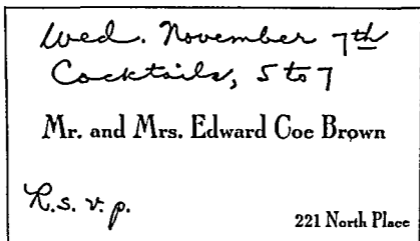 Wed. November 7th
Cocktails, 5 to 7
Mr. and Mrs. Edward Coe Brown
R.s.v.p.
221 North Place